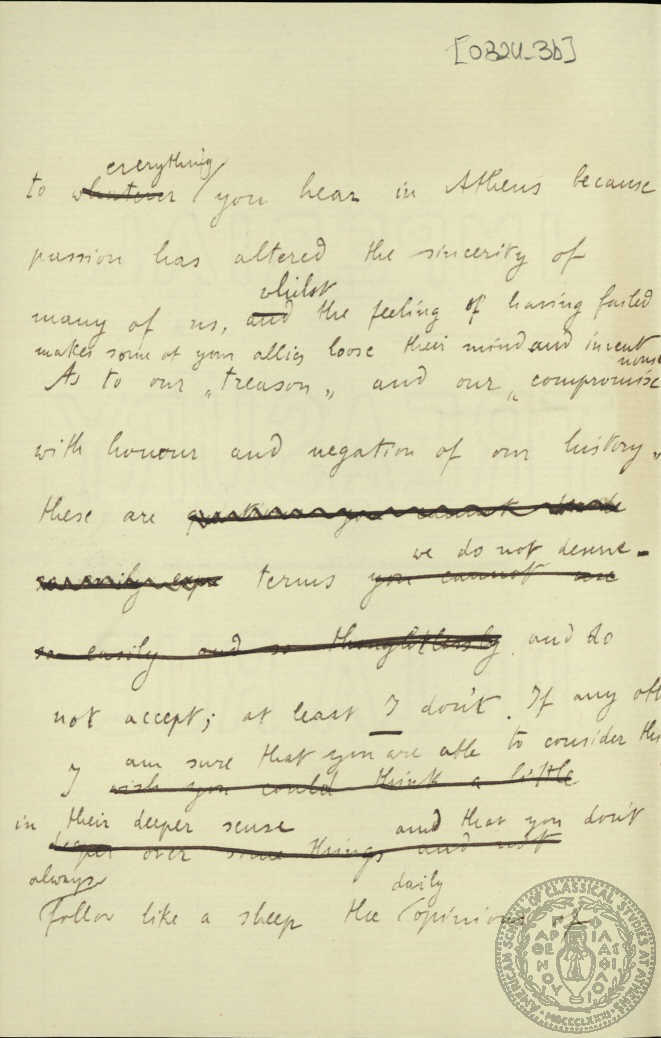 [0324-3b]
everything
to whatever you hear in Athens because
passion has altered the sincerity of
whilst
many of us, and the feeling of having failed
makes some of your allies loose their mind and invent
As to our „treason„ and our „compromise
with honour and negation of our history„
these are you cannot
we do not deserve
terms you cannot use
so easily and so thoughtlessly and do
not accept; at least I don't. If any
am sure that you are able to consider
I wish you could think a little
in their deeper sense and that you don't
deeper over some things and not
always daily
follow like a sheep the opinions of
AMERICAN SCHOOL OF CLASSICAL STUDIES AT ATHENS
MDCCCLXXXI